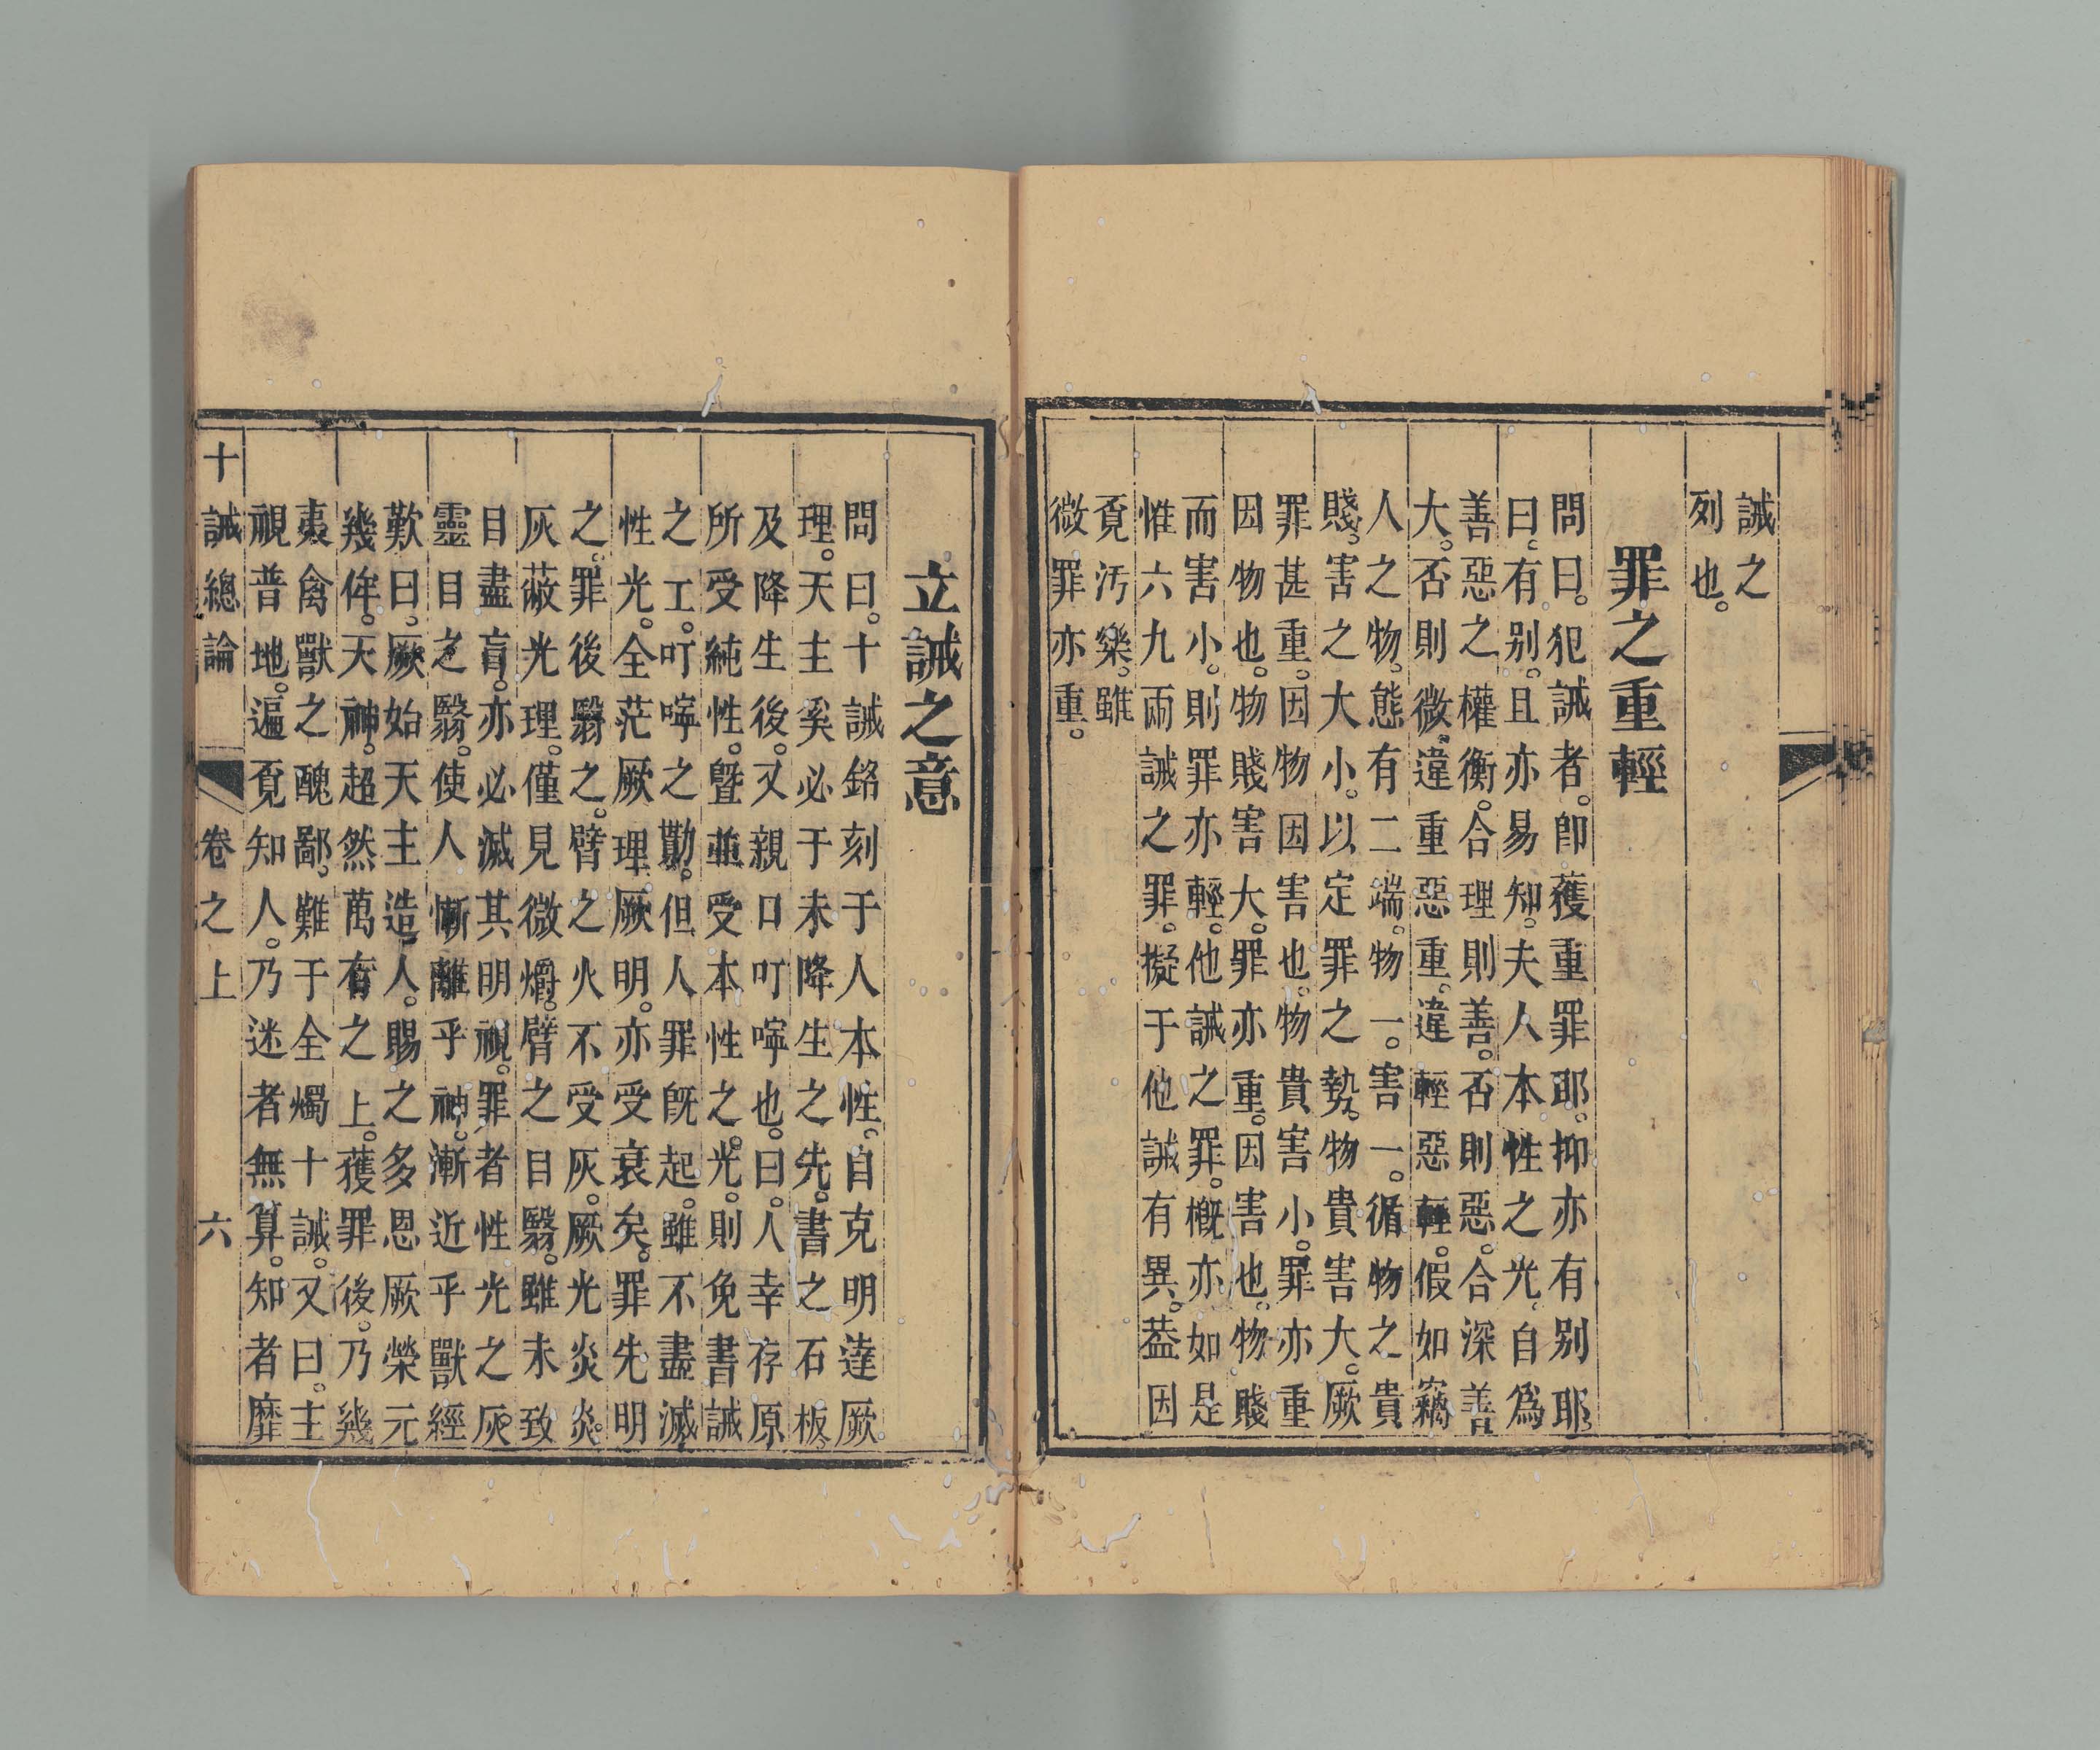 誡之
列也。
罪之重輕
問曰。犯誡者。卽獲重罪耶。抑亦有别耶。
曰。有别。且亦易知。夫人本性之光。自爲
善惡之權衡。合理則善。否則惡。合深善
大。否則微。違重惡重。違輕惡輕。假如竊
人之物。態有二端。物一。害一。循物之貴
賤。害之大小。以定罪之勢。物貴害大。厥
罪甚重。因物因害也。物貴害小。罪亦重
因物也。物賤害大。罪亦重。因害也。物賤
而害小。則罪亦輕。他誡之罪。槪亦如是
惟六九兩誡之罪。擬于他誡有異。葢因
覔汚樂。雖
微罪亦重。
立誡之意
問曰。十誡銘刻于人本性。自克明達厥
理。天主奚必于未降生之先。書之石板。
及降生後。又親口叮嚀也。曰。人幸存原
所受純性。曁並受本性之光。則免書誡
之工。叮嚀之勤。但人罪旣起。雖不盡滅
性光。全茫厥理。厥明。亦受衰矣。罪先明
之。罪後翳之。譬之火不受灰。厥光炎炎。
灰蔽光理。僅見微爝。譬之目翳。雖未致
目盡盲。亦必滅其明視。罪者性光之灰
靈目之翳。使人慚離乎神。漸近乎獸經
歎曰。厥始天主造人。賜之多恩厥榮元
幾侔。天神。超然萬有之上。獲罪後。乃幾
夷禽獸之醜鄙。難于全燭十誡。又曰。主
視普地。遍覔知人。乃迷者無算。知者靡
十誡總論　卷之上　六